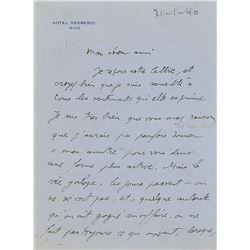 31-1-40
HOTEL NEGRESCO
NICE
Mon cher ami
Je reçois votre lettre, et
croyez bien que je suis sensible à
tous les sentiments qu'elle exprime.
Je sais très bien que vous avez raison
que j'aurais pu parfois donner
à mon amitié pour vous
une forme plus active. Mais la
vie galope, les jours passent - on
ne se voit pas, et, quelque
qu'on ait
pas toujours ce qui